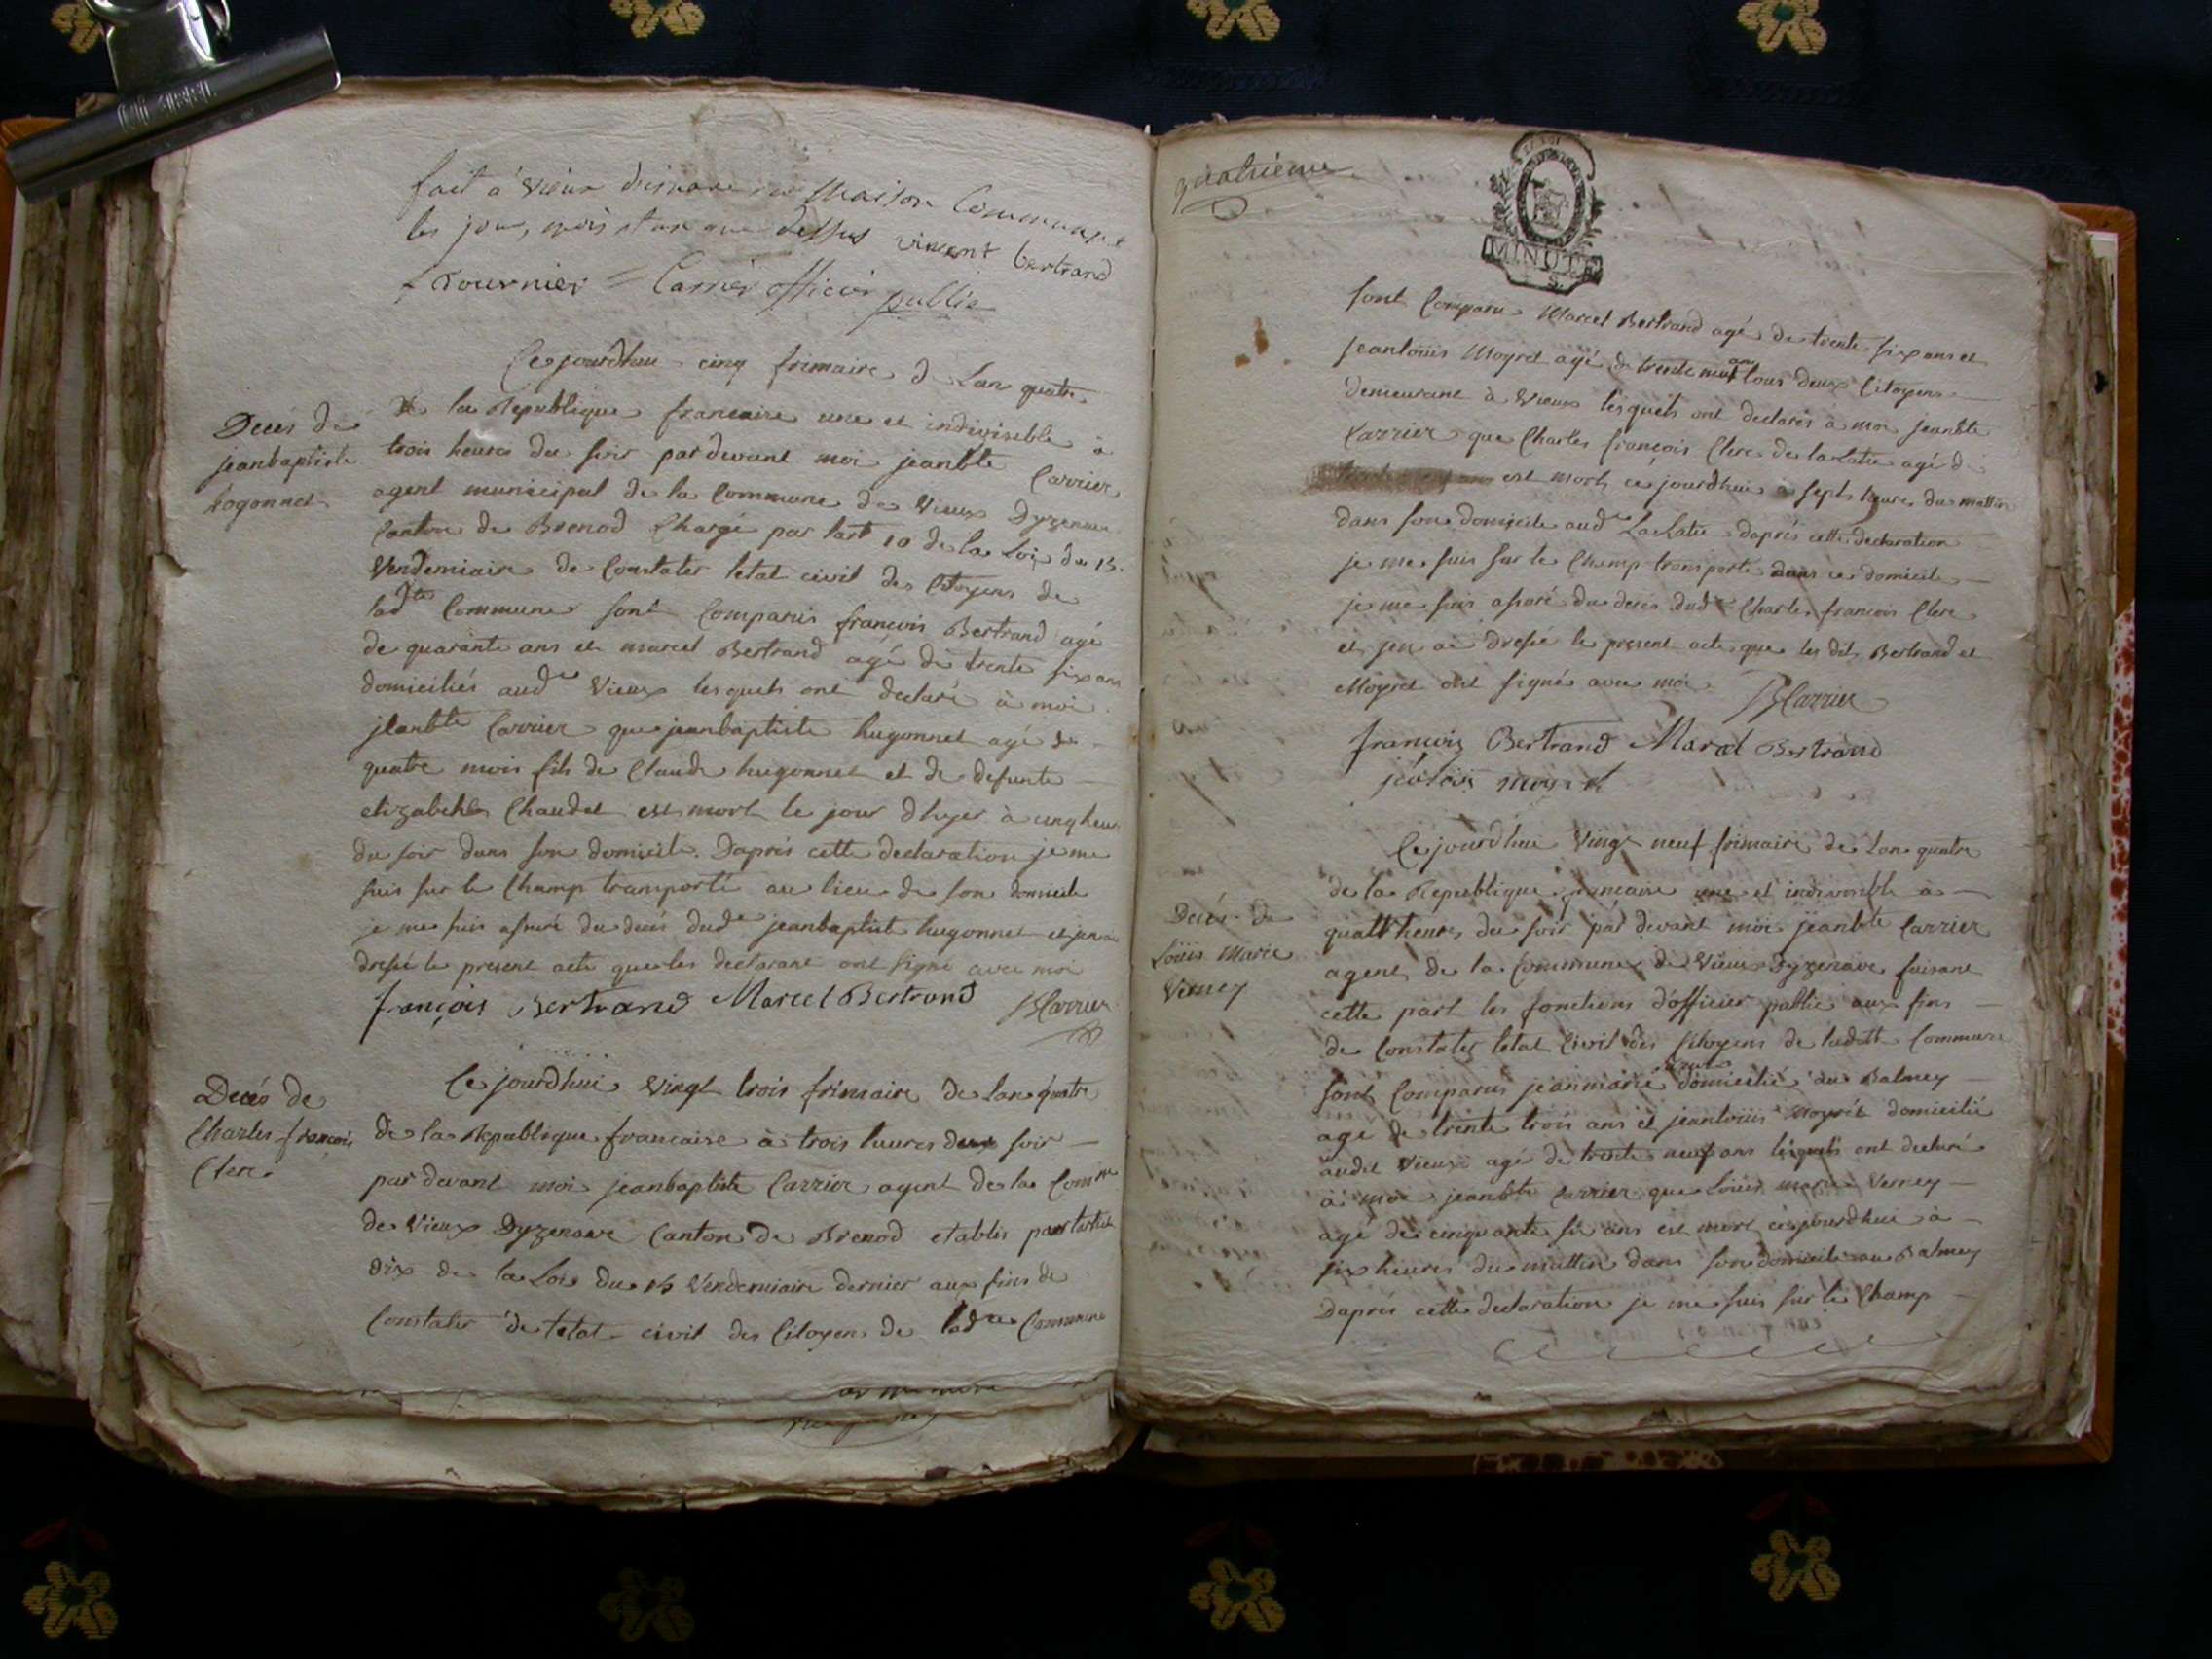 fait à Vieux dizenave en Maison Commune
les jour, mois et an que dessus vincent bertrand
f tournier = Carrier officier public
Ce jourdhui cinq frimaire d Lan quatre
Décés de
jeanbaptiste
hogonnet
de la Republique francaire une et indivisible à
trois heures du soir pardevant moi jeanbte Carrier
agent municipal de la Commune de Vieux Dyzenave
Canton de Brenod Chargé par lart 10 de la Loi du 13.
Vendemiaire de Constater letat civil des Citoyens de
ladte Commune sont Comparus francois Bertrand agé
de quarante ans et marcel Bertrand agé de trente six ans
domiciliés aud Vieux lesquels ont declaré à moi
jeanbte Carrier que jeanbaptiste hugonnet agé de
quatre mois fils de Claude hugonnet et de defunte
elizabeth Chaudet est mort le jour dhyer à cinq heur
du soir dans son domicile. Daprés cette declaration je me
suis sur le Champ transporté au lieu de son domicile
je me suis assuré du decés dud jeanbaptiste hugonnet et jen ai
dressé le present acte que les declarant ont signé avec moi
françois Bertrand Marcel Bertrand JBCarrier
Decés de
Charles françois
Clerc
Ce jourdhui Vingt trois frimaire de Lan quatre
de la Republique francaise à trois heures deux soir
par devant moi jeanbaptiste Carrier agent de la Comne
de Vieux Dyzenave Canton de Brenod etablis par larticle
dix de la Loi du 13 Vendemiaire dernier aux fins de
Constater de letat civil des Citoyens de ladte Commune
quatrieme
MINUTE
S.
sont Comparu Marcel Bertrand agé de trente six ans et
jeanloüis Moyret agé de trente neuf ans tous deux Citoyens
demeurant à Vieux lesquels ont declarés à moi jeanbte
Carrier que Charles françois Clerc de la Latte agé de
est mort ce jourdhui à sept heures du mattin
dans son domicile aud La Latte daprés cette declaration
je me suis sur le Champ transporté dans ce domicile
je me suis assuré du decés dud Charles francois Clerc
et jen ai dressé le present acte que les dits Bertrand et
Moyret ont signés avec moi JBCarrier
françois Bertrand Marcel Bertrand
Ce jourdhui Vingt neuf frimaire de Lan quatre
Decés de
Loüis Marie
Verney
de la Republique francaise une et indivisible à
quatt heures du soir par devant moi jeanbte Carrier
agent de la Commune de Vieux Dyzenave faisant
cette part les fonctions d'officier public aux fins
de Constater letat Civil des Citoyens de ladtte Commune
sont Comparus jeanmarie domicilié au Balmey
agé de trente trois ans et jeanloüis Moyret domicilié
audit Vieux agé de trente neuf ans lesquels ont declaré
à moi jeanbte Carrier que Loüis marie Verney
agé de cinquante six ans est mort cejourdhui à
six heures du mattin dans son domicile au Balmey
Daprés cette declaration je me suis sur le Champ